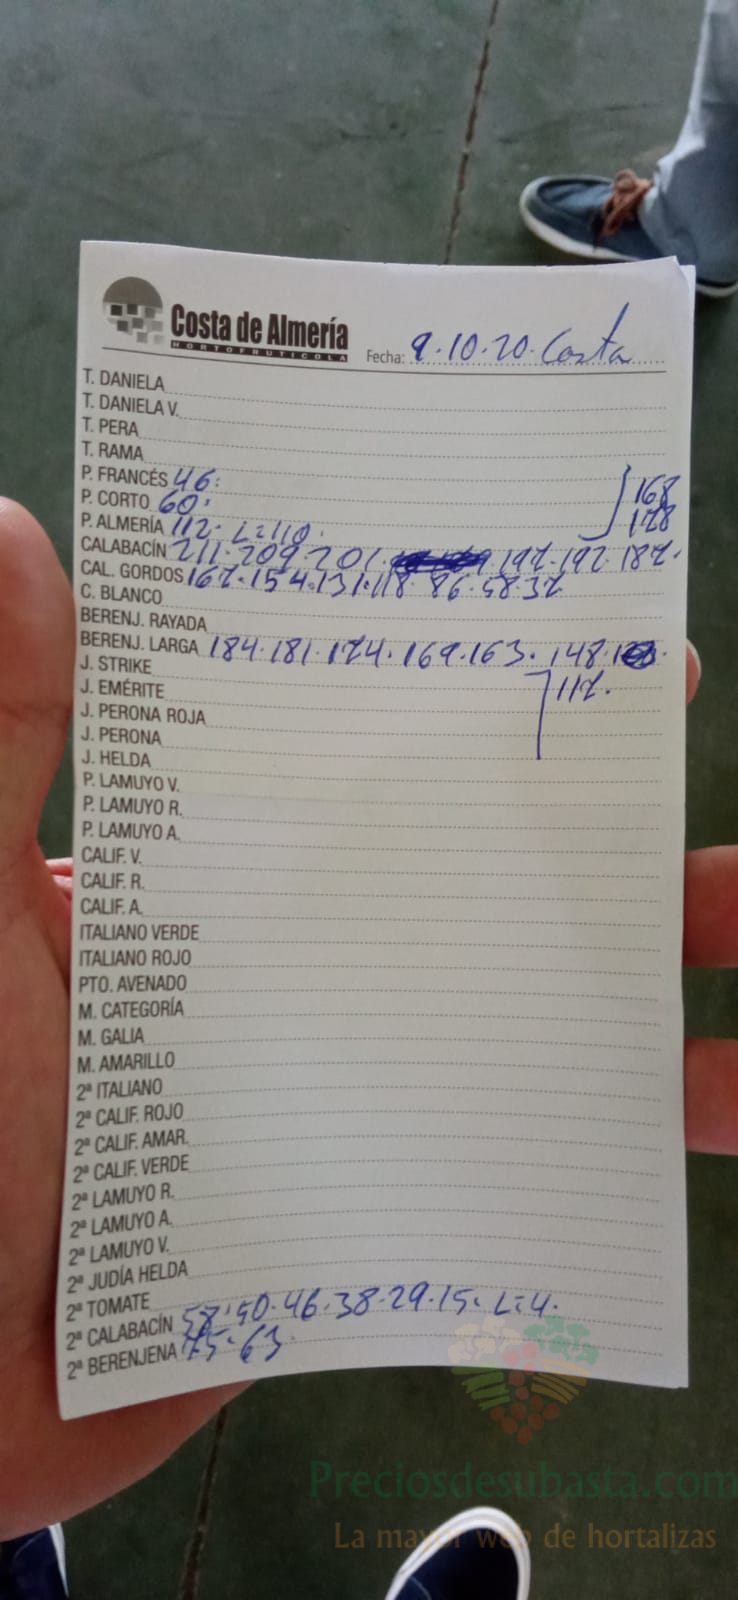 Costa de Almería
HORTOFRUTICOLA
Fecha: 9.10.20. Costa
T. DANIELA
T. DANIELA V.
T. PERA
T. RAMA
P. FRANCÉS 46.
P. CORTO 60.
P. ALMERÍA 112. L=110.
168
178
CALABACÍN 211.209.201. 197.192.187.
CAL. GORDOS 167.154.131.118.86.58.37
C. BLANCO
BERENJ. RAYADA
BERENJ. LARGA 184.181.174.169.163.148.
117.
J. STRIKE
J. EMÉRITE
J. PERONA ROJA
J. PERONA
J. HELDA
P. LAMUYO V.
P. LAMUYO R.
P. LAMUYO A.
CALIF. V.
CALIF. R.
CALIF. A.
ITALIANO VERDE
ITALIANO ROJO
PTO. AVENADO
M. CATEGORÍA
M. GALIA
M. AMARILLO
2ª ITALIANO
2ª CALIF. ROJO
2ª CALIF. AMAR.
2ª CALIF. VERDE
2ª LAMUYO R.
2ª LAMUYO A.
2ª LAMUYO V.
2ª JUDÍA HELDA
2ª TOMATE
2ª CALABACÍN 58.50.46.38.29.15. L=4.
2ª BERENJENA 75.63.
Preciosdesubasta.com
La mayor web de hortalizas